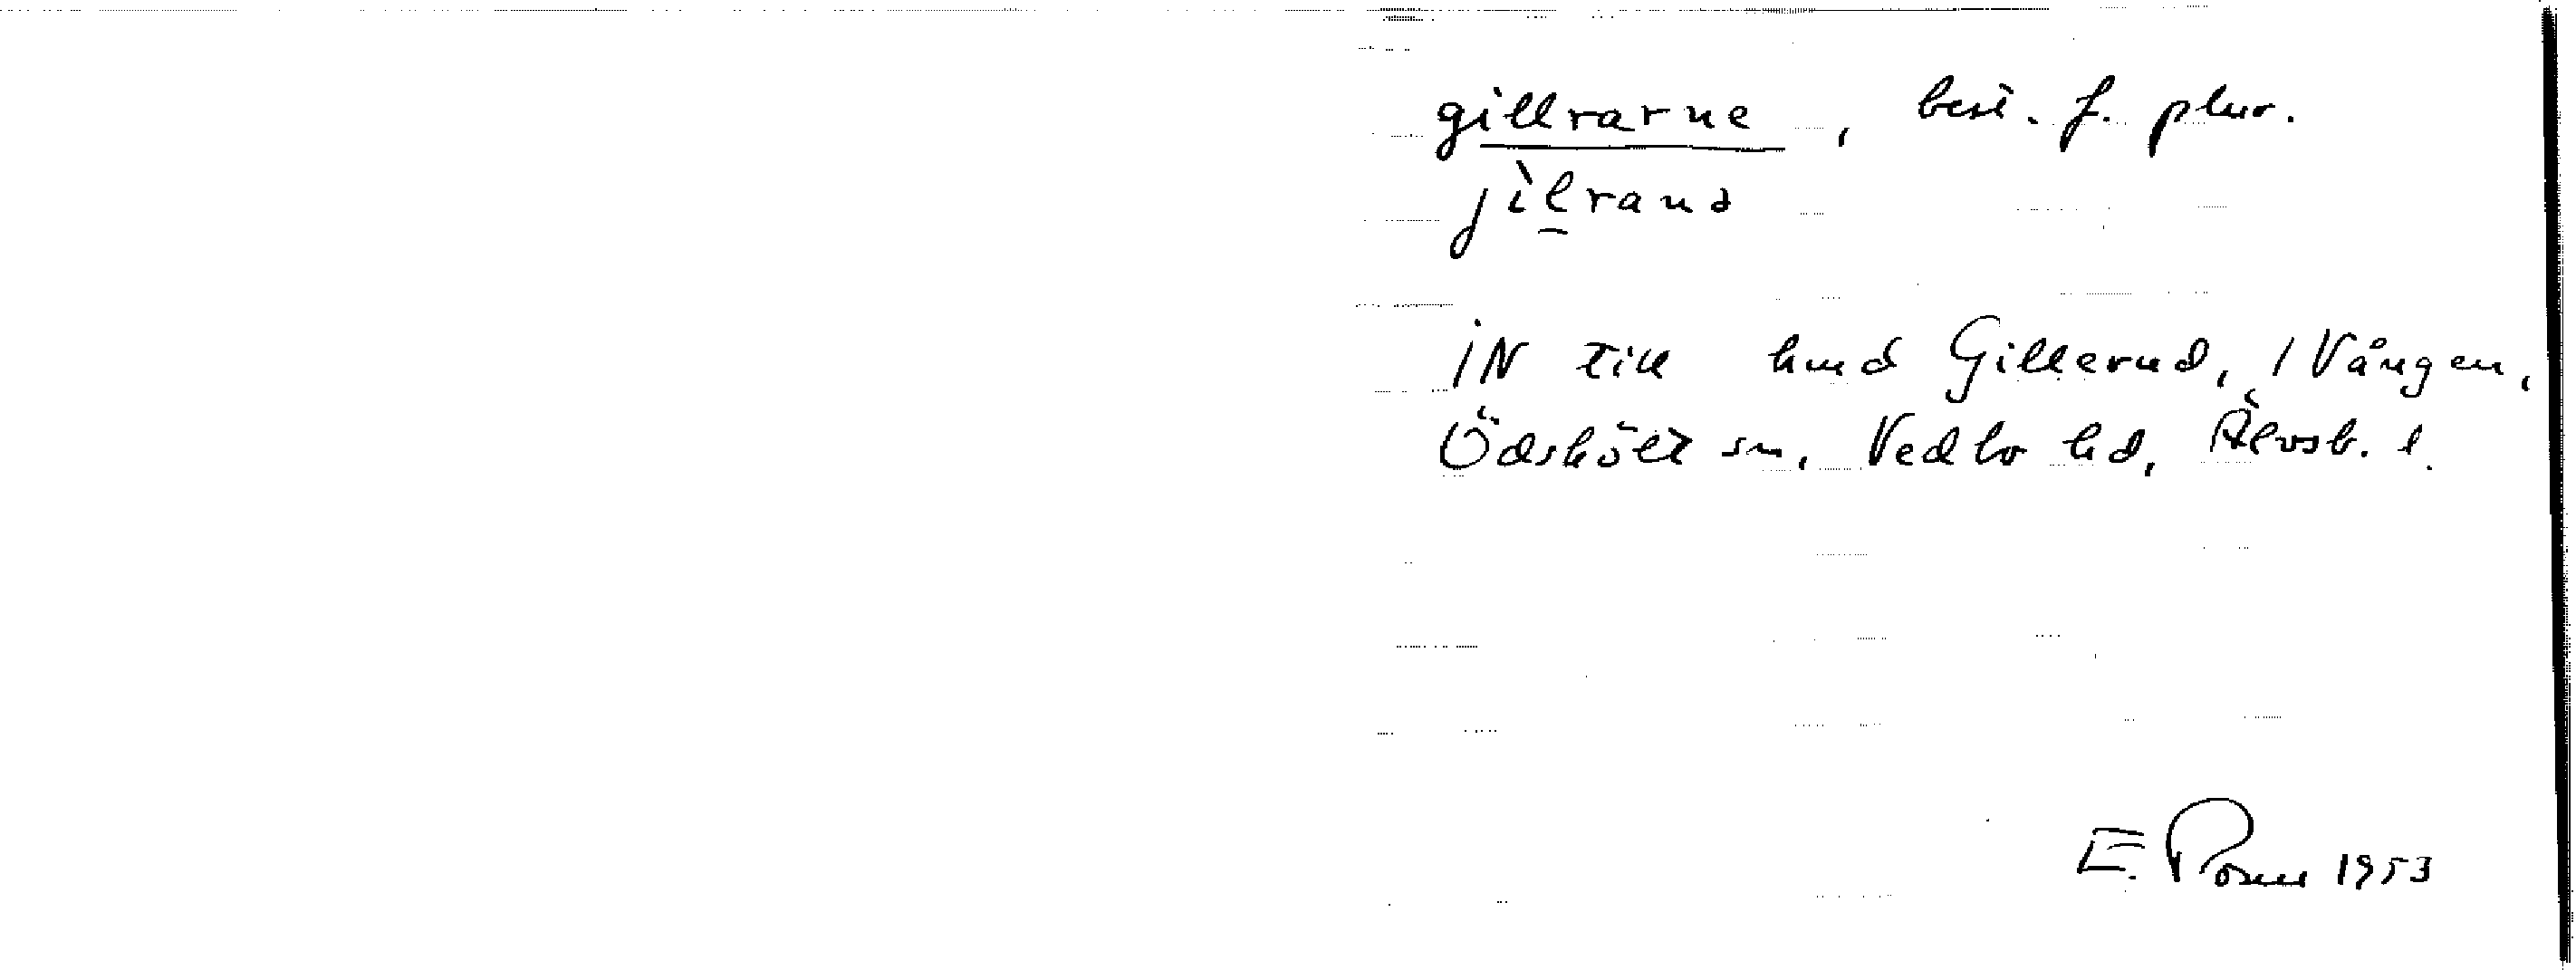 gillrarne, best. f. plur.
jìl̲ranə
IN till hmd Gillerud, 1 Vången,
Ödskölt sn, Vedbo hd, Älvsb. l.
E. 1953